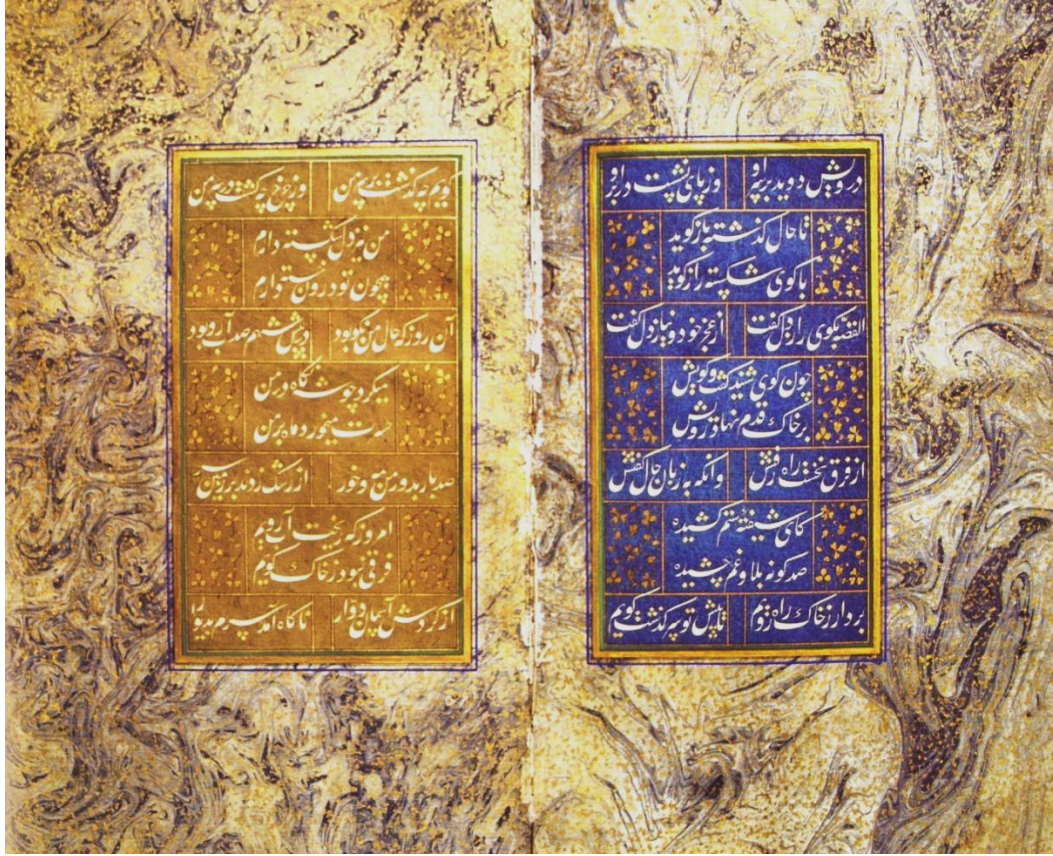 درویش دوید بر او وز پای نشست در بر او
تا حال گذشته باز گوید
با گوی شکسته راز گوید
القصه بگوی راز دل گفت از عجز خود و نیاز دل گفت
چون گوی شنید گفت و گویش
بر خاک قدم نهاد رویش
از فرق نخست راه رفتش وانگه به زبان حال گفتش
کای شیفته ستم کشیده
صد گونه بلا و غم چشیده
بردار ز خاک راه رویم تا پیش تو سرگذشت گویم
گویم چه گذشت بر سر من وز چرخ چه گشت در بر من
من نیز دلی شکسته دارم
همچون تو درون خسته دارم
آن روز که حال من نکو بود در پیش شهم صد آبرو بود
میکرد چو شه نگاه در من
حسرت میخورد ماه بر من
صد بار بدور من مه و خور از رشک زدند بر زمین سر
امروز که ریخت آبرویم
فرقی نبود ز خاک کویم
از گردش آسمان دوار ناگاه آمد سرم بدیوار